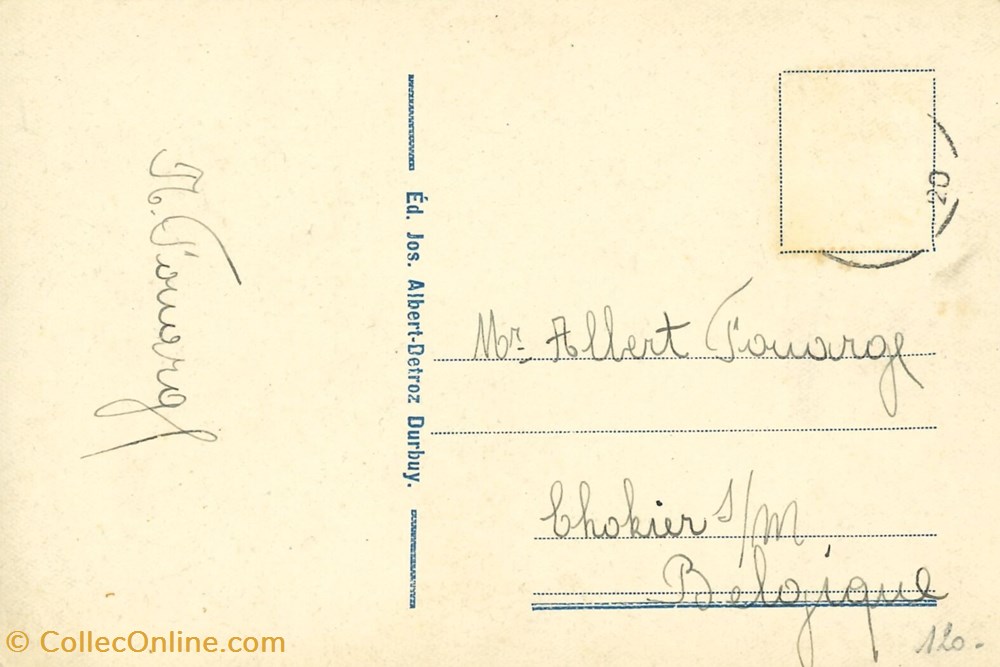 M. Fouarge
Éd. Jos. Albert-Detroz Durbuy.
20
Mr. Albert Fouarge
Chokier s/M
Belgique
120.-
© CollecOnline.com